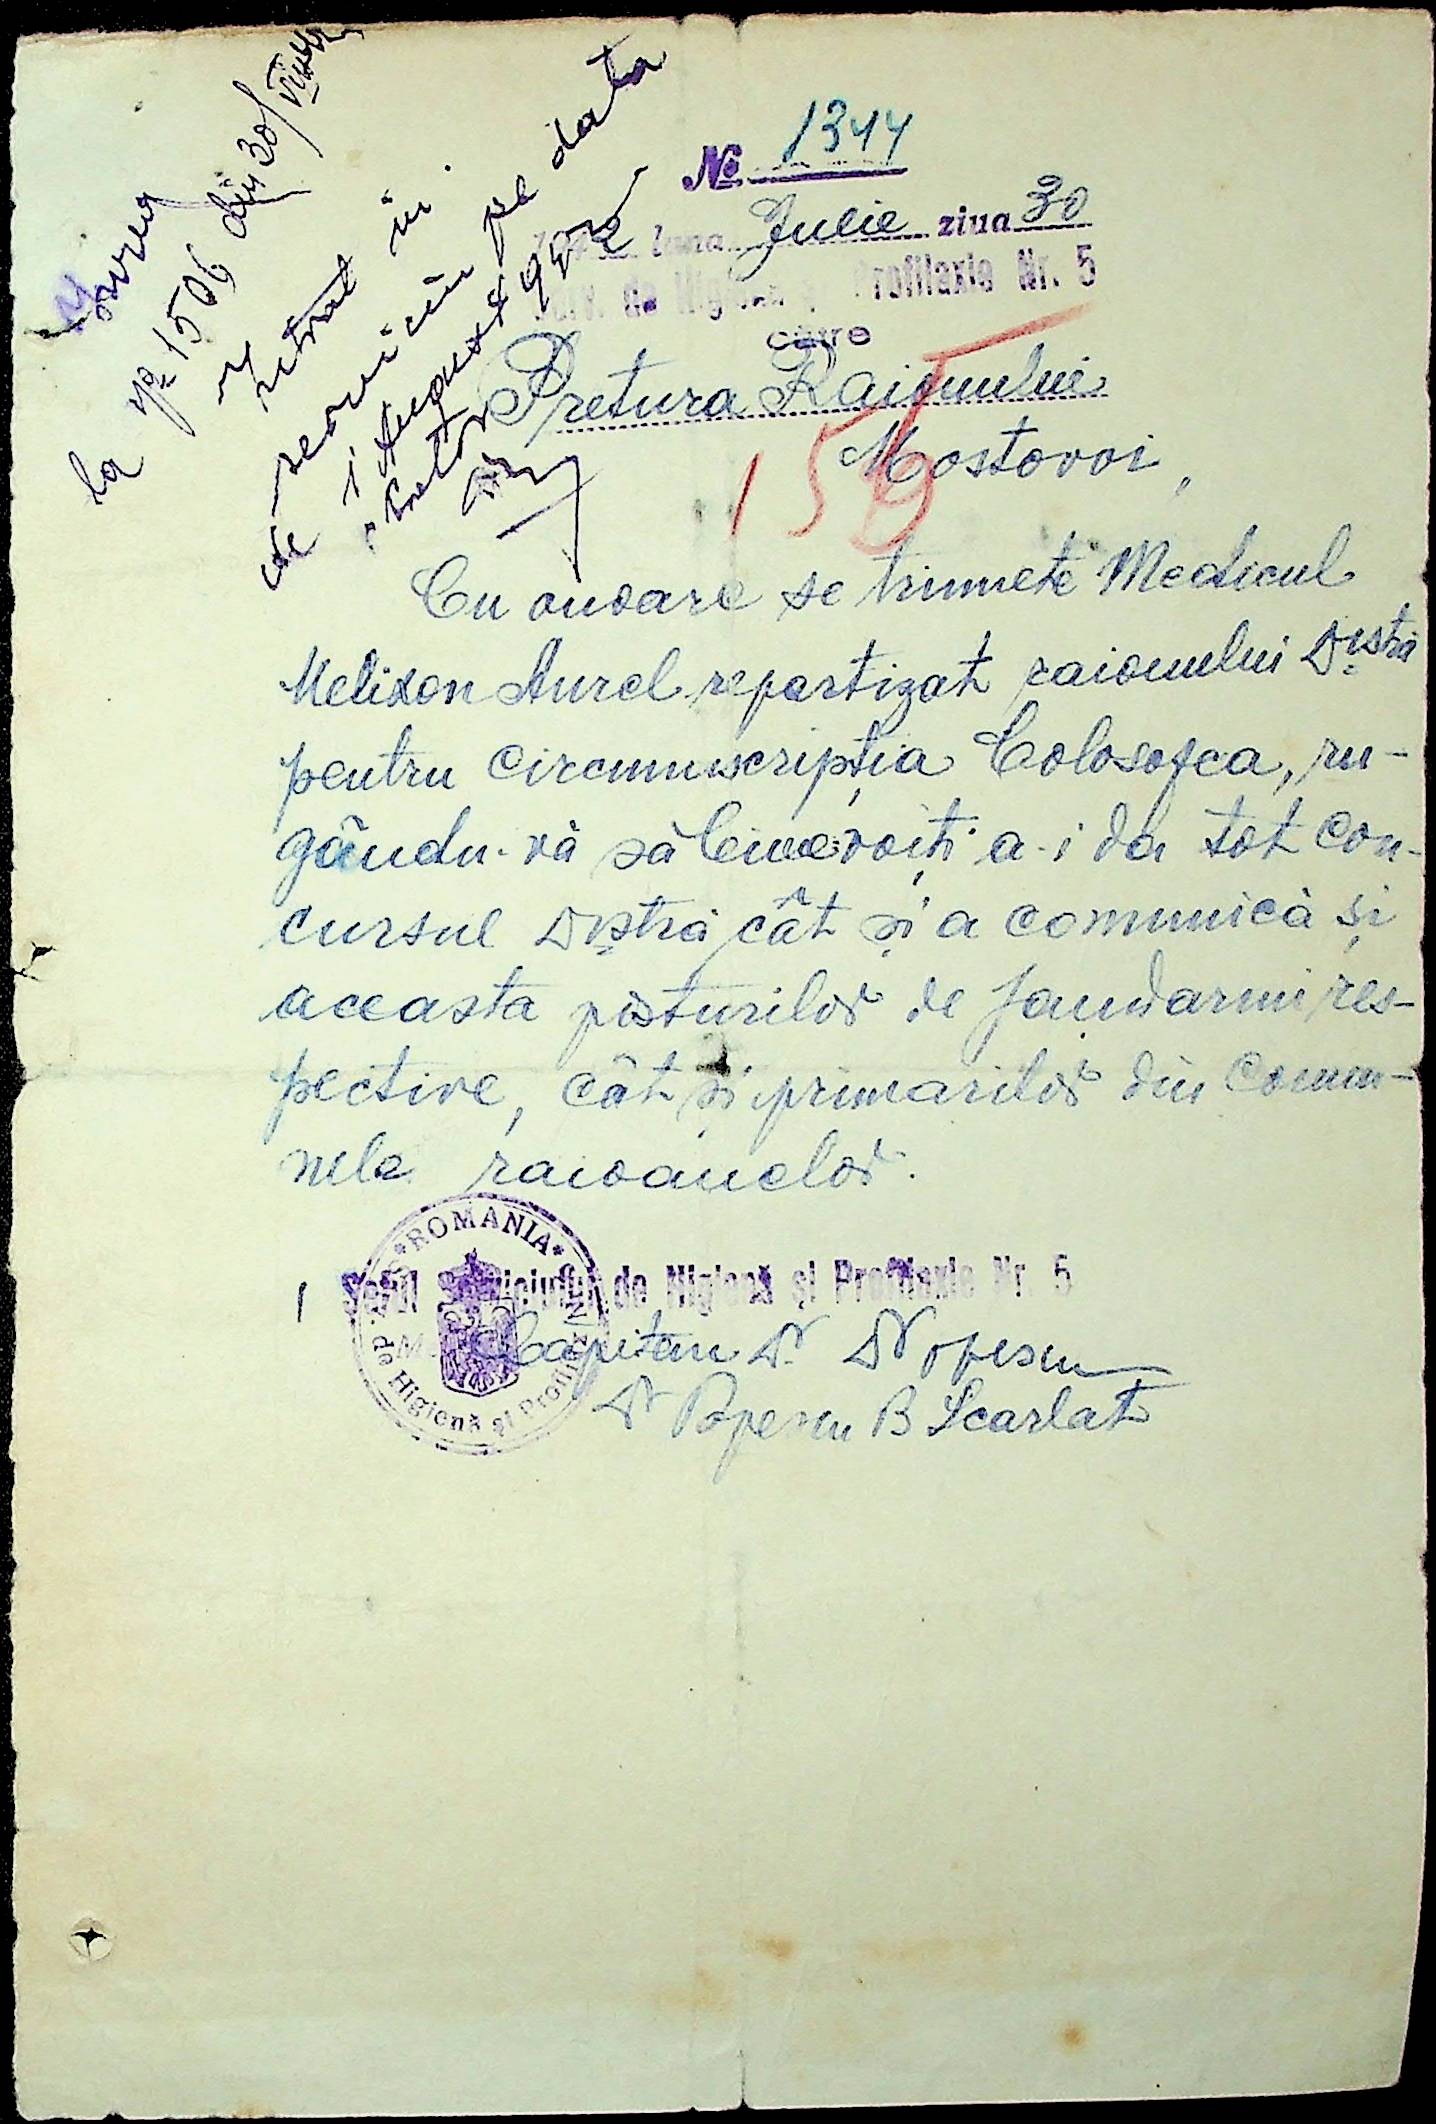 la No 1506 din 30/VII
Intrat în
serviciu pe data
de 1 August 942
Pretor
No 1344
1942 luna Iulie ziua 30
Serv. de Higienă și Profilaxie Nr. 5
către
Pretura Raionului
Mostovoi,
155
Cu onoare se trimete Medicul
Melixon Aurel repartizat raionului Dvstră
pentru circumscripția Colosofca, ru-
gându-vă să binevoiți a-i da tot con-
cursul Dvstră cât și a comunică și
aceasta posturilor de jandarmi res-
pective, cât și primarilor din comu-
nele raioanelor.
Șeful Serviciului de Higienă și Profilaxie Nr. 5
Capitan Dr. Popescu
Dr Popescu B Scarlat
*ROMANIA*
de Higienă și Profilaxie